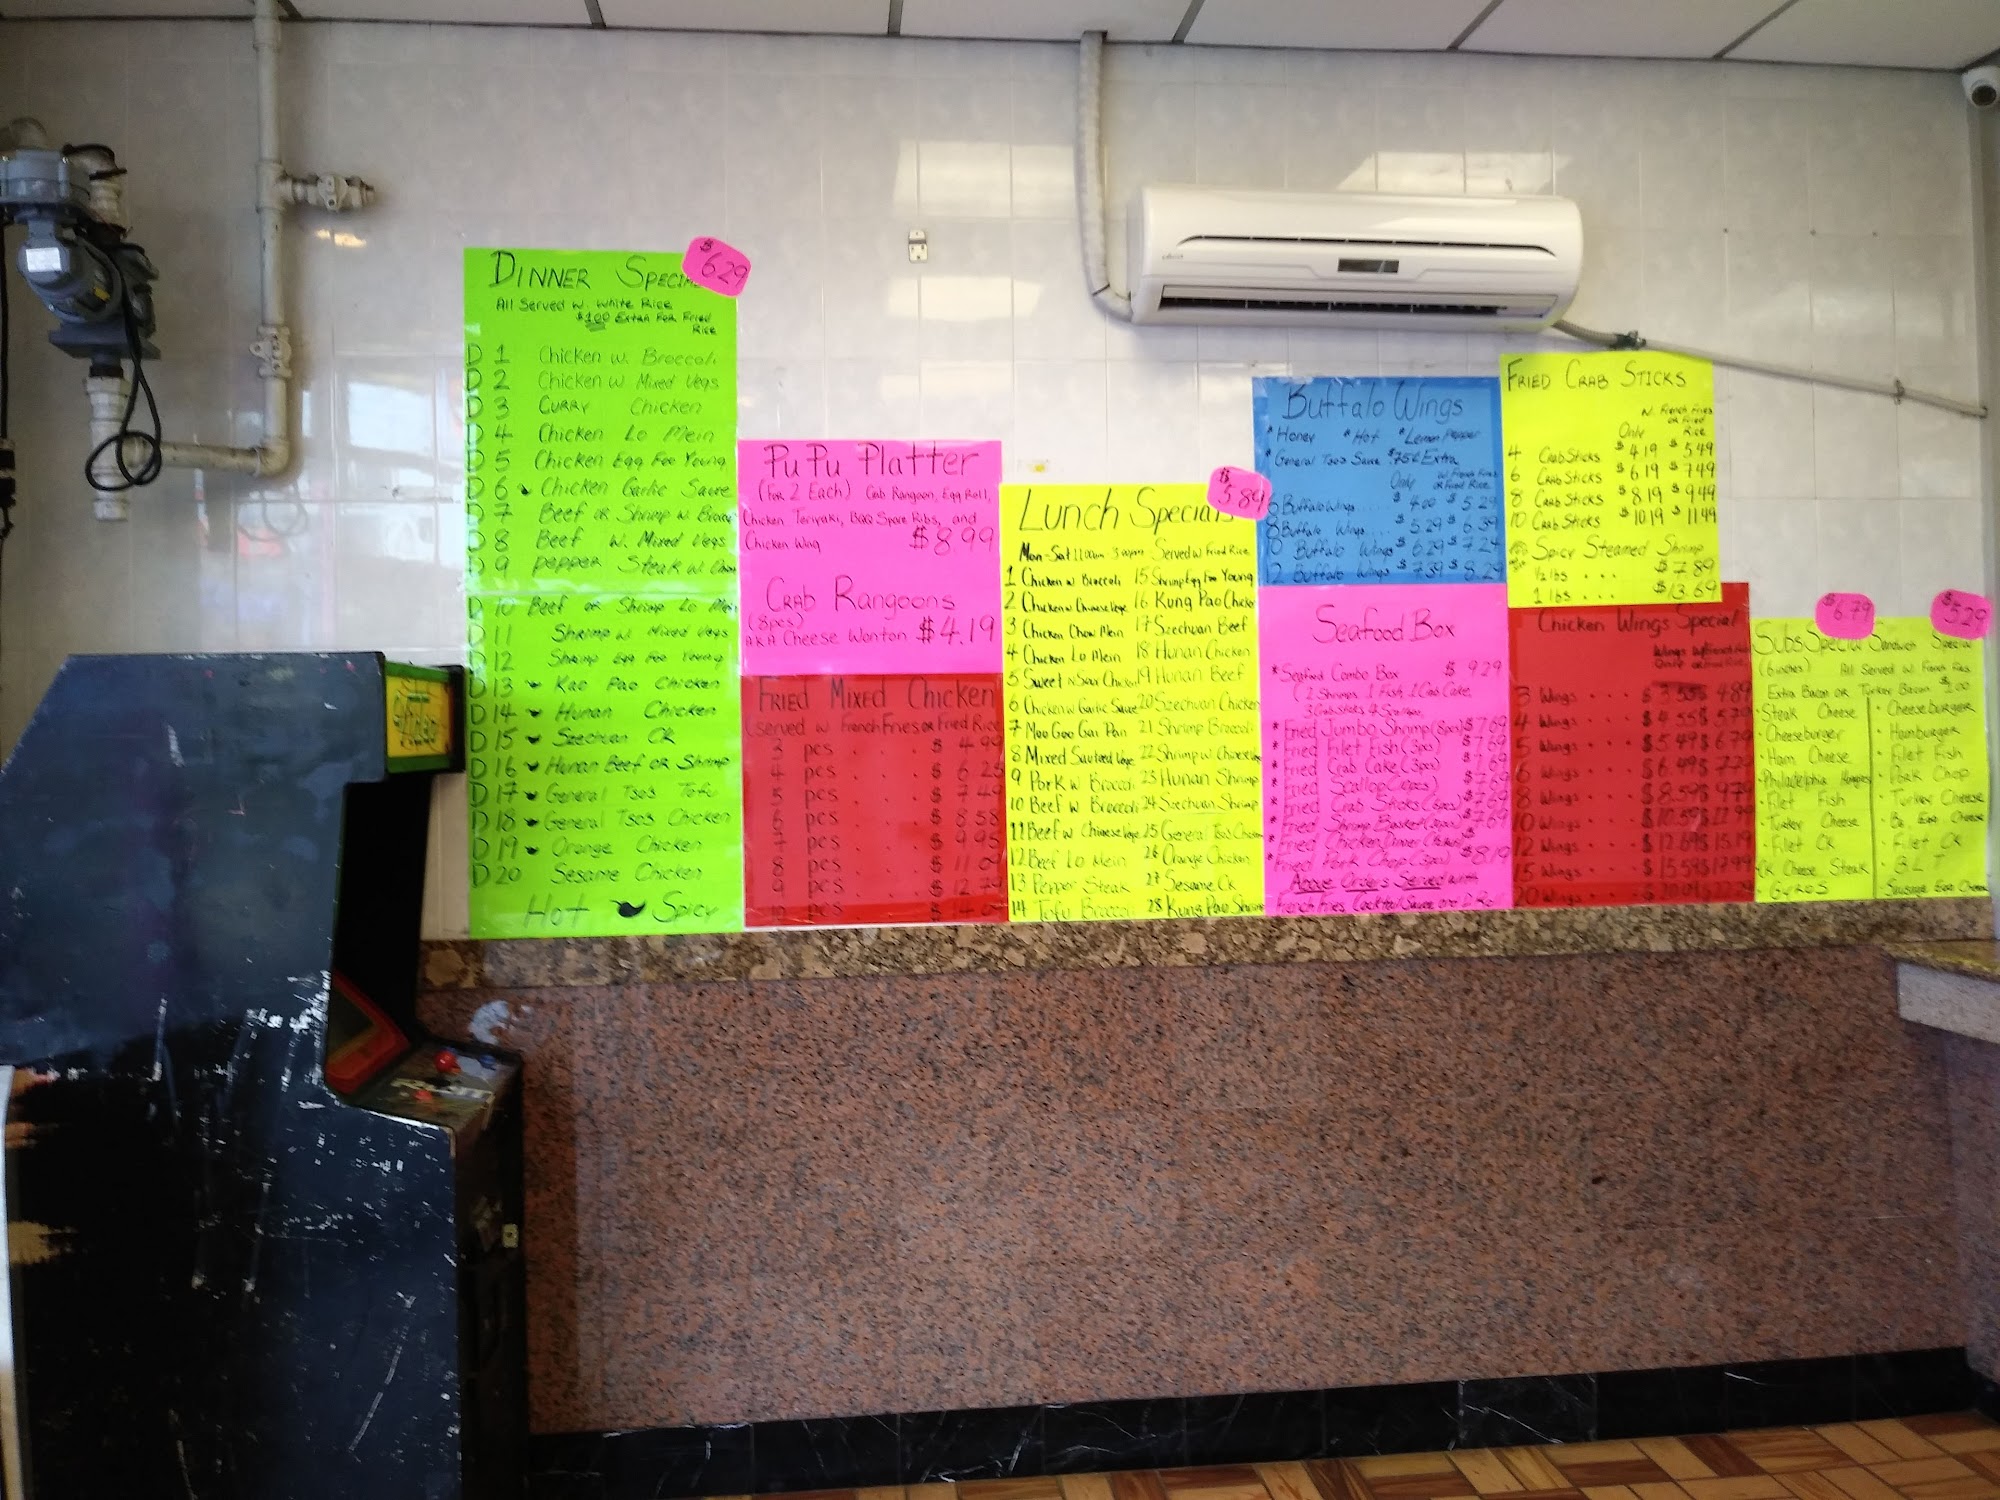 $6.29
DINNER
All Served w. White Rice
$1.00 Extra For Fried
Rice
D 1 Chicken w. Broccoli
D 2 Chicken w Mixed Vegs
D 3 CURRY Chicken
D 4 Chicken Lo Mein
D 5 Chicken Egg Foo Young
D 6 Chicken Garlic Sauce
D 7 Beef or Shrimp w.
D 8 Beef w. Mixed Vegs
D 9 Pepper Steak w.
D 10 Beef or Shrimp Lo Mein
D 11 Shrimp w Mixed Vegs
D 12 Shrimp Egg Foo Young
D 13 Kao Pao Chicken
D 14 Hunan Chicken
D 15 Szechuan CK
D 16 Hunan Beef or Shrimp
D 17 General Tso's Tofu
D 18 General Tso's Chicken
D 19 Orange Chicken
D 20 Sesame Chicken
Hot Spicy
Pu Pu Platter
(For 2 Each) Crab Rangoon, Egg Roll,
Chicken Teriyaki, BBQ Spare Ribs, and
Chicken Wing $8.99
CRAB Rangoons
(8pcs)
A.K.A Cheese Wonton $4.19
FRIED MIXED CHICKEN
(served w French Fries or Fried Rice
3 pcs . . . $ 4.99
4 pcs . . . $ 6.25
5 pcs . . . $ 7.49
6 pcs . . . $ 8.58
7 pcs . . . $ 9.95
8 pcs . . . $ 11.09
9 pcs . . . $ 12.79
$5.89
Lunch Specials
Mon-Sat 11:00am - 3:00pm Served w Fried Rice
1 Chicken w Broccoli 15 Shrimp Egg Foo Young
2 Chicken w Chinese Vege 16 Kung Pao Chicken
3 Chicken Chow Mein 17 Szechuan Beef
4 Chicken Lo Mein 18 Hunan Chicken
5 Sweet n Sour Chicken 19 Hunan Beef
6 Chicken w Garlic Sauce 20 Szechuan Chicken
7 Moo Goo Gai Pan 21 Shrimp Broccoli
8 Mixed Sauteed Vege 22 Shrimp w Chinese Vege
9 Pork w Broccoli 23 Hunan Shrimp
10 Beef w Broccoli 24 Szechuan Shrimp
11 Beef w Chinese Vege 25 General Tso's Chicken
12 Beef Lo Mein 26 Orange Chicken
13 Pepper Steak 27 Sesame CK
14 Tofu Broccoli 28 Kung Pao Shrimp
Buffalo Wings
* Honey * Hot * Lemon Pepper
* General Tso's Sauce $.75¢ Extra
Only w French Fries
or Fried Rice
6 Buffalo Wings . . . . $ 4.00 $ 5.29
8 Buffalo Wings . . . $ 5.29 $ 6.39
Buffalo Wings $ 6.29 $ 7.24
Buffalo Wings $ 7.39 $ 8.29
Seafood Box
* Seafood Combo Box $ 9.29
(2 Shrimps, 1 Fish, 1 Crab Cake,
3 Crab Sticks, 4 Scallops)
* Fried Jumbo Shrimp (8pcs) $7.69
* Fried Filet Fish (3pcs) $7.69
* Fried Crab Cake (3pcs) $7.69
* Fried Scallop $7.69
* Fried Crab Sticks $7.69
* Fried Shrimp Basket $7.69
* Fried Chicken Dinner
* Fried Pork Chop $8.19
Above Orders Served with
French Fries Cocktail Sauce and
FRIED CRAB STICKS
W. French Fries
or Fried
Only Rice
4 Crab Sticks $ 4.19 $ 5.49
6 Crab Sticks $ 6.19 $ 7.49
8 Crab Sticks $ 8.19 $ 9.49
10 Crab Sticks $ 10.19 $ 11.49
Spicy Steamed Shrimp
1/2 lbs . . . $ 7.89
1 lbs . . . $ 13.69
Chicken Wings Special
Wings
Only
3 Wings . . . $ 3.55 $ 4.89
4 Wings . . . $ 4.55 $ 5.79
5 Wings . . . $ 5.49 $ 6.79
6 Wings . . . $ 6.49 $ 7.79
8 Wings . . . $ 8.59 $ 9.79
10 Wings . . . $ 10.59 $ 11.99
12 Wings . . . $ 12.89 $ 15.19
15 Wings . . . $ 15.59 $ 17.99
20 Wings . . .
$6.79
Subs Special
(6 inches)
Extra Bacon or Turkey Bacon $1.00
Steak Cheese
Cheeseburger
Ham Cheese
Philadelphia
Filet Fish
Turkey Cheese
Filet CK
CK Cheese Steak
Gyros
$5.29
Sandwich Special
All Served w. French Fries
Cheeseburger
Hamburger
Filet Fish
Pork Chop
Turkey Cheese
Egg Cheese
Filet CK
B.L.T
Sausage Egg Cheese